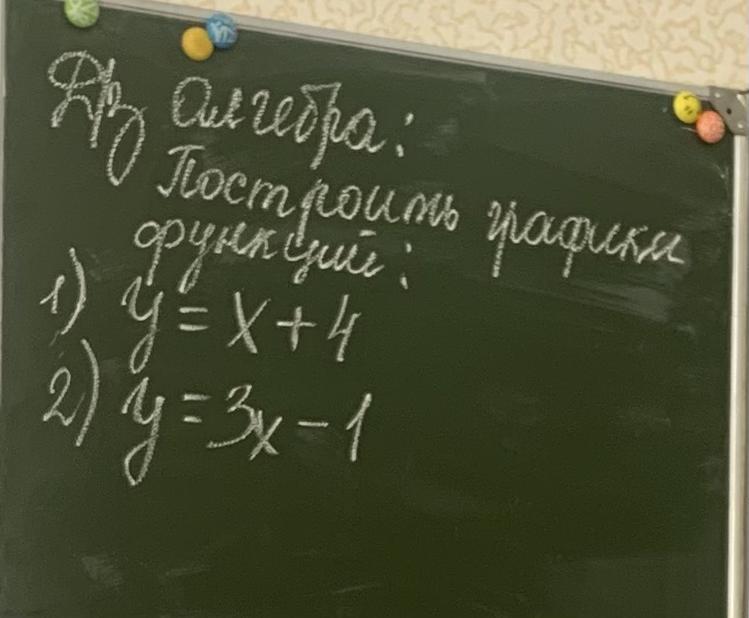 Дз Алгебра:
Построить графики
функций:
1) y = x + 4
2) y = 3x - 1